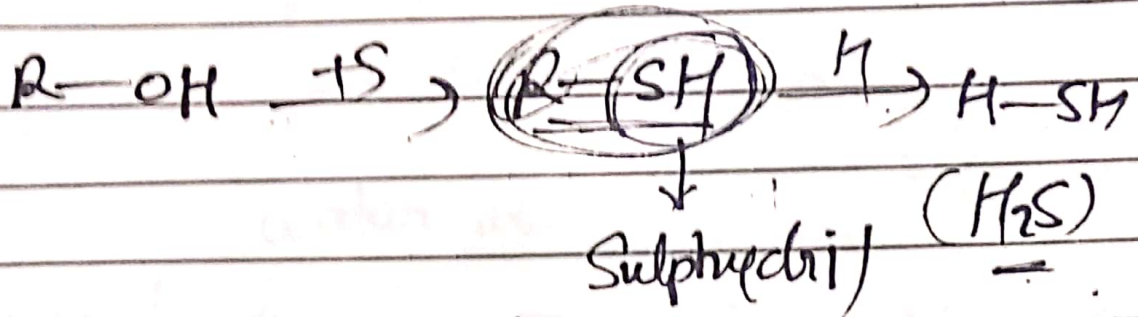 R—OH +S→ R—SH H→ H—SH
(H₂S)
Sulphydril